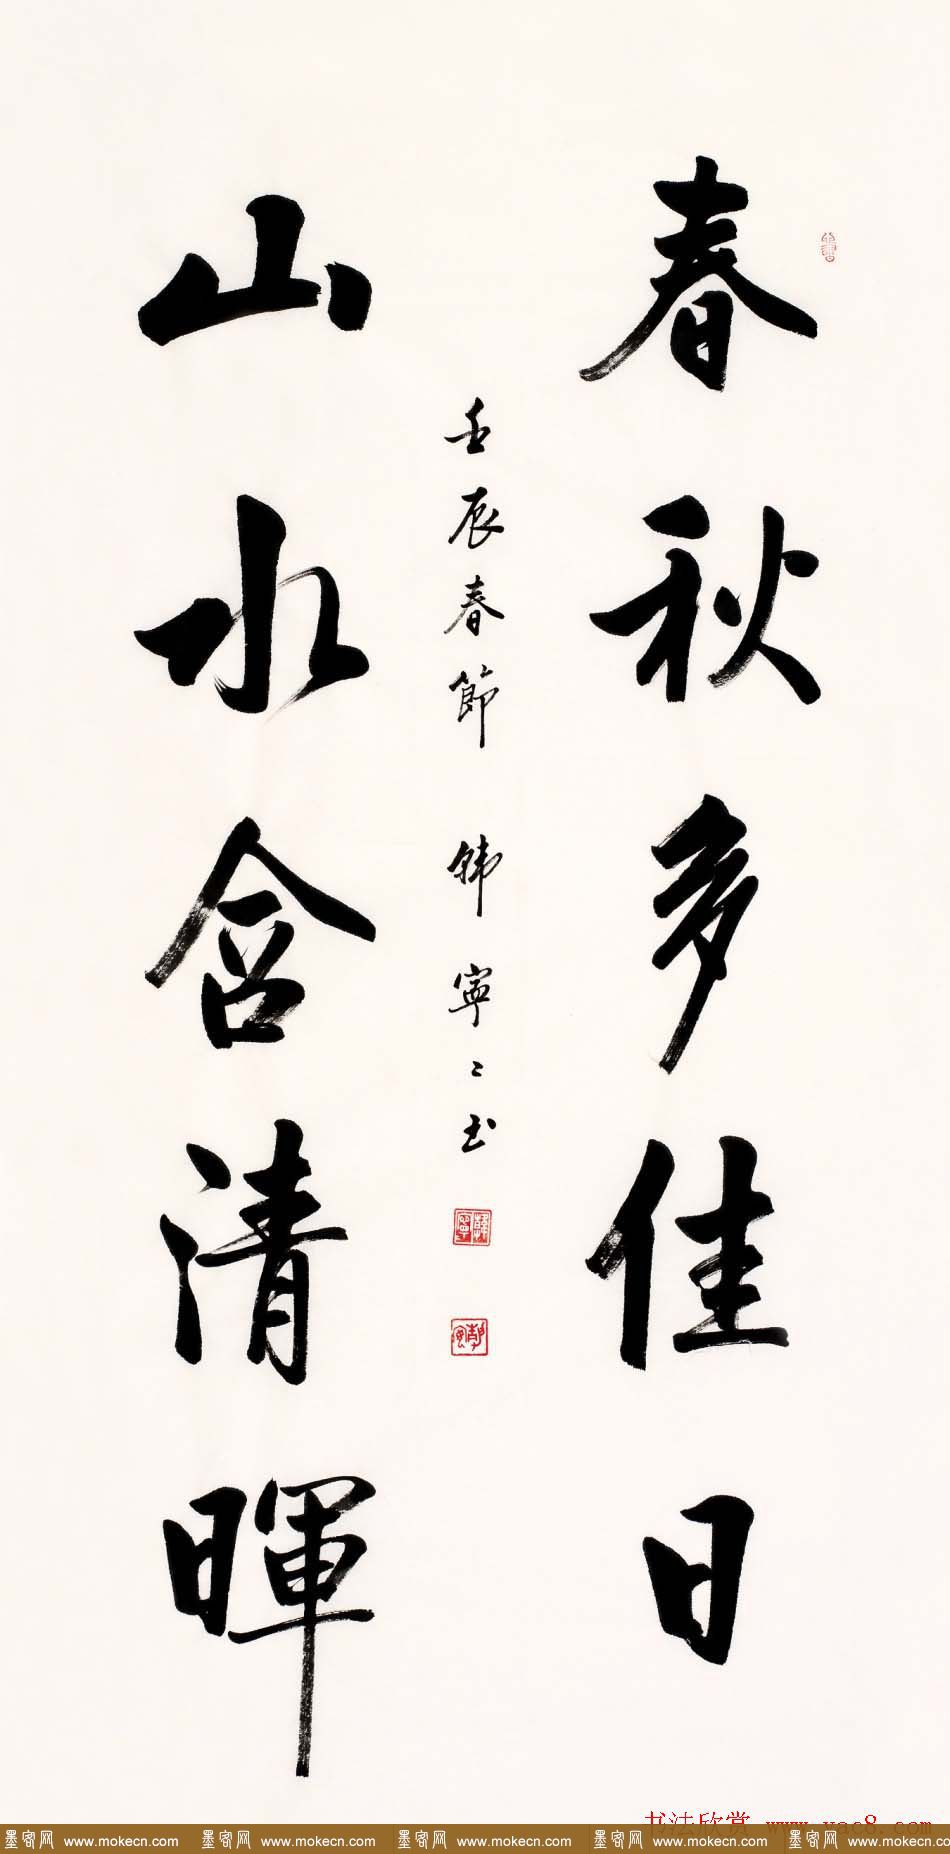 春秋多佳日
壬辰春節 韓寧寧书
韓寧
山水含清暉
书法欣赏 www.yac8.com
墨客网 www.mokecn.com 墨客网 www.mokecn.com 墨客网 www.mokecn.com 墨客网 www.mokecn.com 墨客网 www.mokecn.com